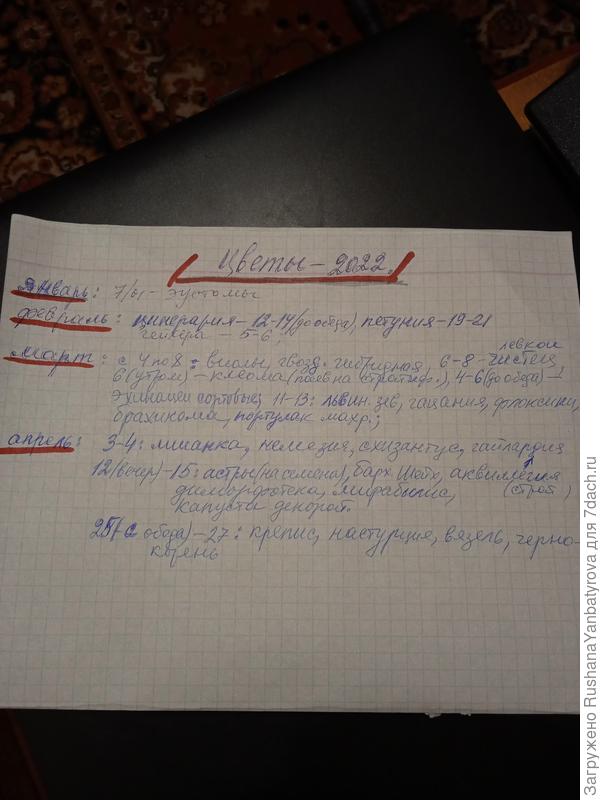 Цветы - 2022.
Январь: 7/ы - эустомы
февраль: цинерария - 12-14 (до обеда), петуния - 19-21
гейхера - 5-6;
левкой
март: с 4 по 8: виолы, гвозд. гибридная, 6-8 - чистец,
6 (утром) - клеома (посев на стратиф.), 4-6 (до обеда) -
эхинацеи сортовые; 11-13: львин. зев, гацания, флоксики,
брахикома, портулак махр.;
апрель: 3-4: мшанка, немезия, схизантус, гайлардия
12 (вечер) - 15: астры (на семена), барх. Шейх, аквилегия
диморфотека, мирабилис, (строй)
капусты декорат.
25 (с обеда) - 27: крепис, настурция, вязель, черно-
корень
Загружено RushanaYanbatyrova для 7dach.ru